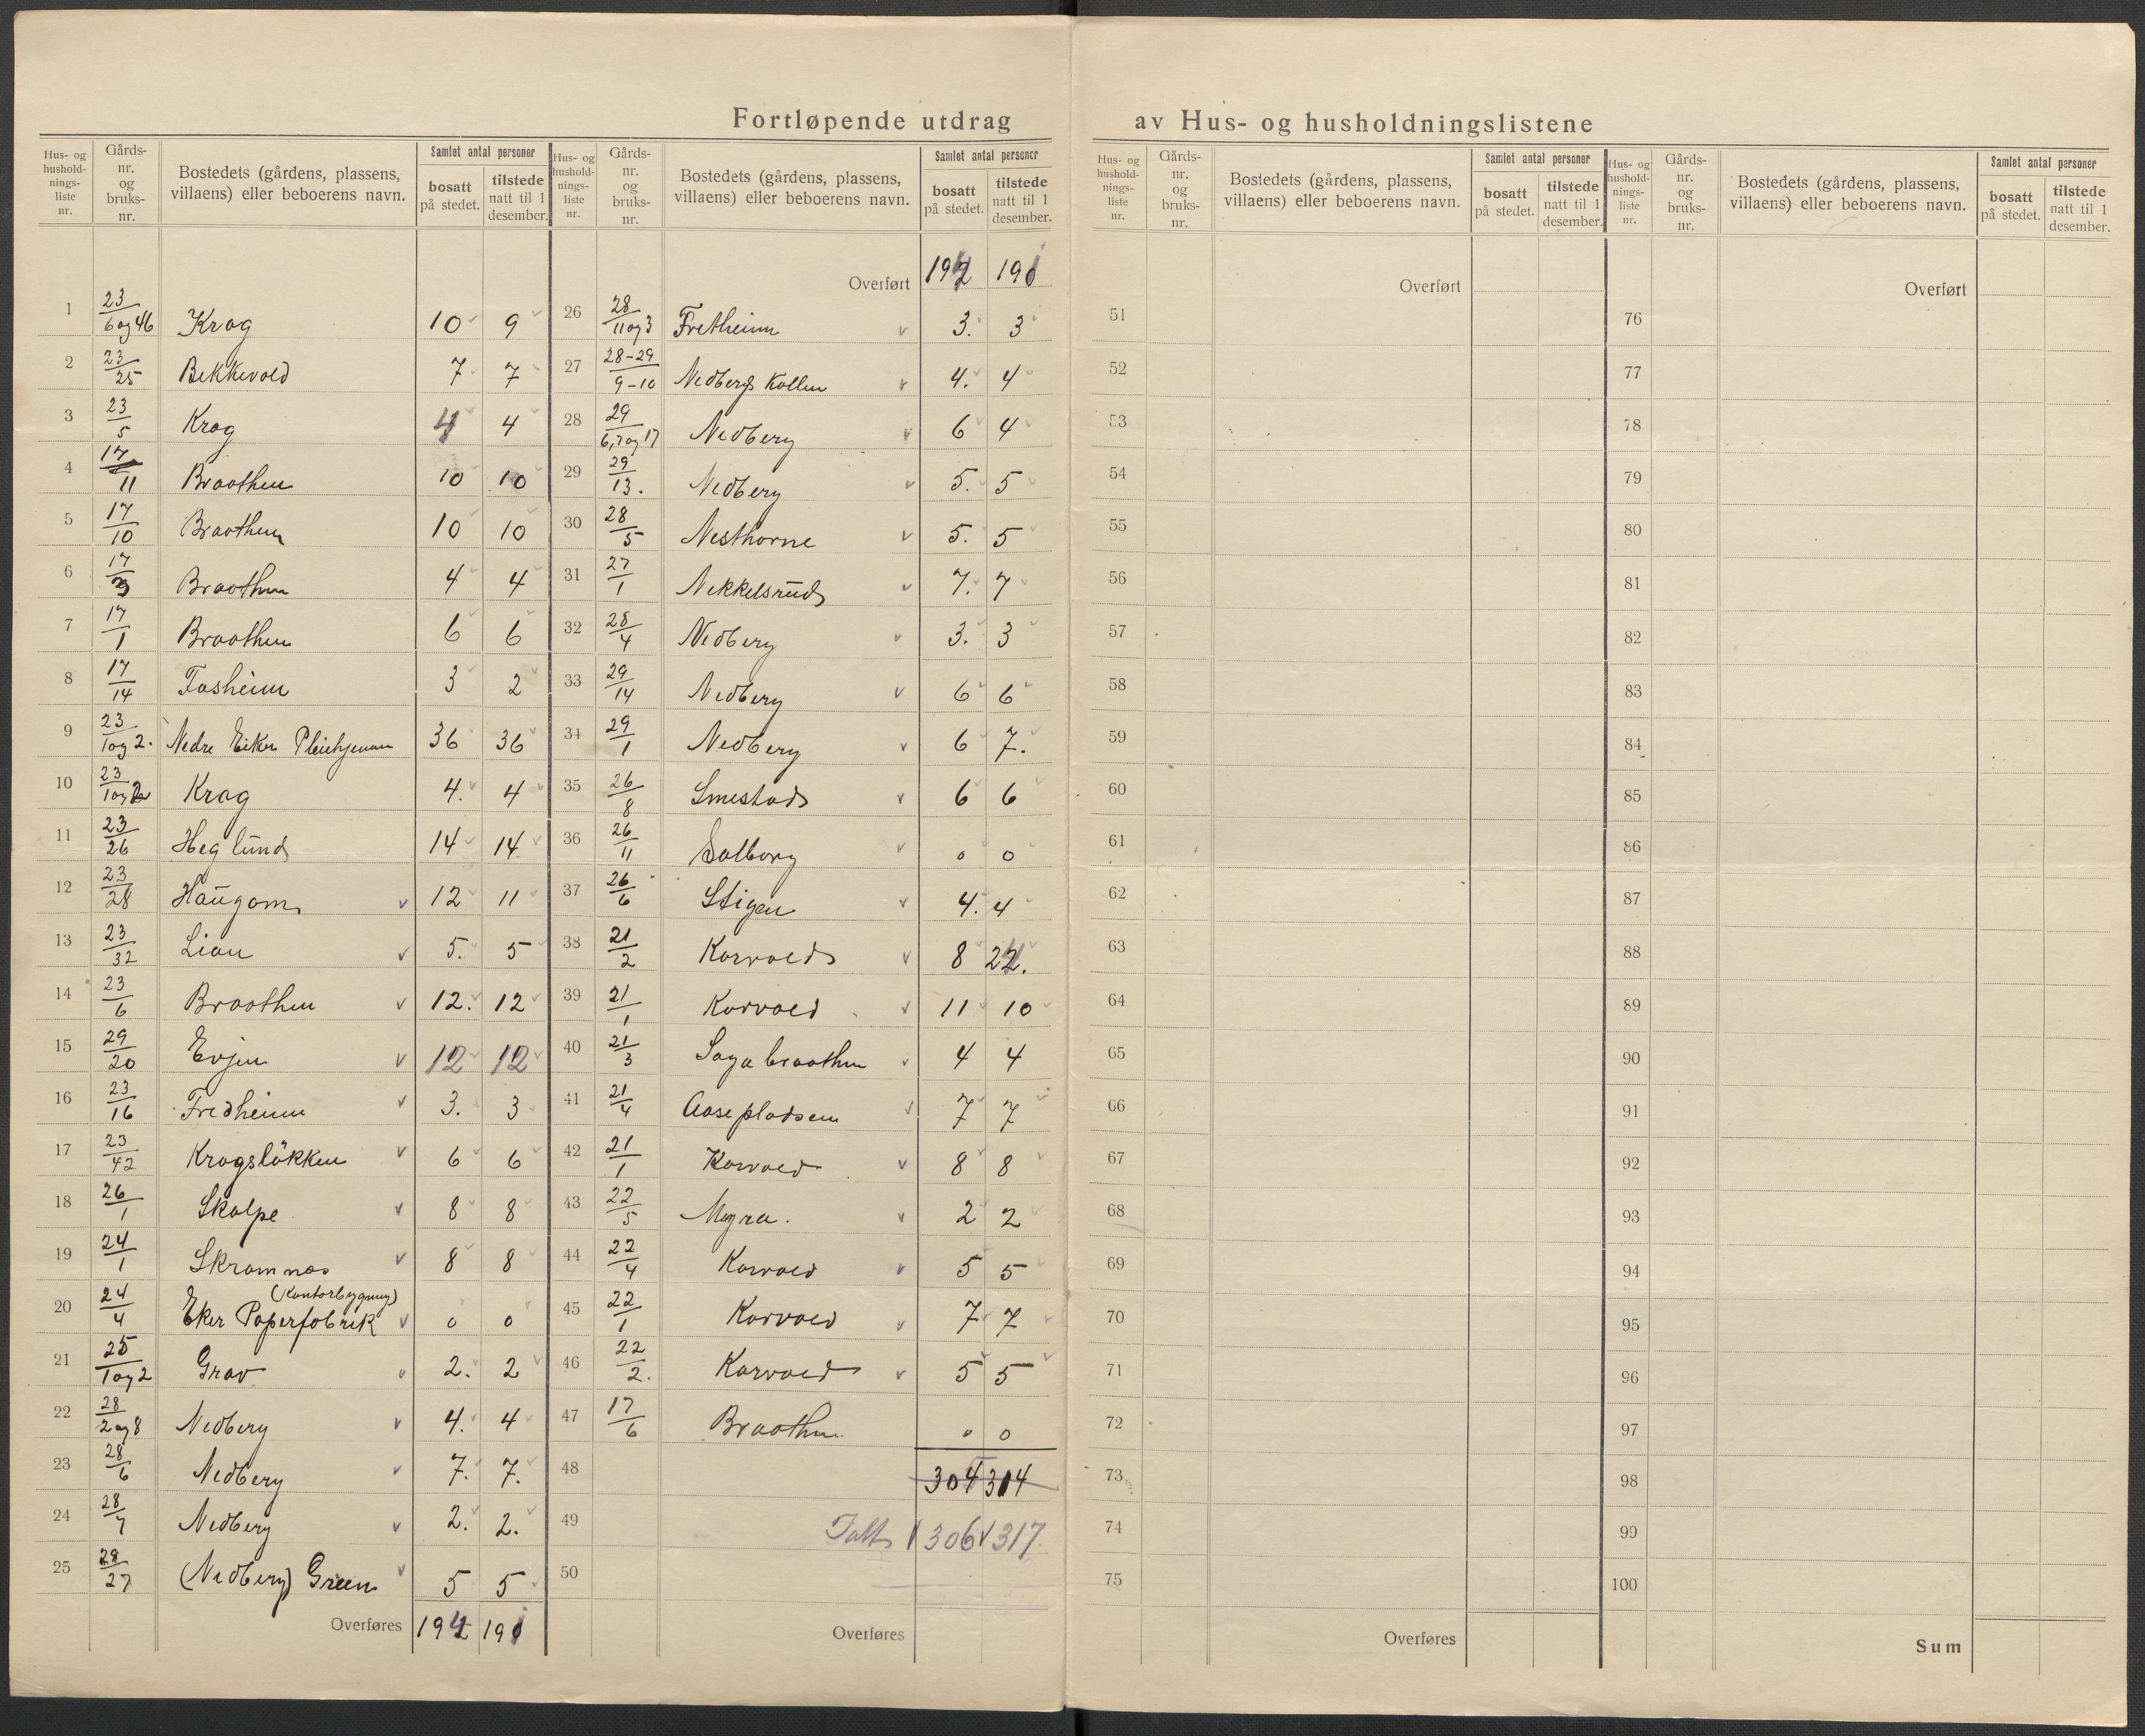 Fortløpende utdrag av Hus- og husholdningslistene
Hus- og hushold-nings-liste nr. | Gårds-nr. og bruks-nr. | Bostedets (gårdens, plassens, villaens) eller beboerens navn. | Samlet antal personer | bosatt på stedet. | tilstede natt til 1 desember.
1 23/6 og 46 Krog 10 9
2 23/25 Bekkevold 7 7
3 23/5 Krog 4 4
4 17/11 Braathen 10 10
5 17/10 Braathen 10 10
6 17/3 Braathen 4 4
7 17/1 Braathen 6 6
8 17/14 Fosheim 3 2
9 23/1 og 2. Nedre Eiker Pleiehjem 36 36
10 23/1 og 2 Krog 4. 4
11 23/26 Heglund 14 14
12 23/28 Haugom 12 11
13 23/32 Lian 5. 5
14 23/6 Braathen 12. 12
15 29/20 Evjen 12 12
16 23/16 Fredheim 3. 3
17 23/42 Krogsløkken 6 6
18 26/1 Skalpe 8 8
19 24/1 Skramnes 8 8
20 24/4 Eker Paperfabrik (Kontorbygning) 0 0
21 25/1 og 2 Grav 2. 2
22 28/2 og 8 Nedberg 4. 4
23 28/6 Nedberg 7. 7.
24 28/7 Nedberg 2. 2.
25 28/27 (Nedberg) Green 5 5
Overføres 194 191
Hus- og hushold-nings-liste nr. | Gårds-nr. og bruks-nr. | Bostedets (gårdens, plassens, villaens) eller beboerens navn. | Samlet antal personer | bosatt på stedet. | tilstede natt til 1 desember.
Overført 194 191
26 28/11 og 3 Fretheim 3. 3
27 28-29/9-10 Nedbergs Kollen 4. 4
28 29/6,7 og 17 Nedberg 6 4
29 29/13. Nedberg 5. 5
30 28/5 Nesthorne 5. 5
31 27/1 Nekkelsrud 7. 7
32 28/4 Nedberg 3. 3
33 29/14 Nedberg 6 6
34 29/1 Nedberg 6 7.
35 26/8 Smestad 6 6
36 26/11 Solborg 0 0
37 26/6 Stigen 4. 4
38 21/2 Korvold 8 22.
39 21/1 Korvold 11 10
40 21/3 Sagabraathen 4 4
41 21/4 Aasepladsen 7 7
42 21/1 Korvold 8 8
43 22/5 Myra. 2 2
44 22/4 Korvold 5 5
45 22/1 Korvold 7 7
46 22/2. Korvold 5 5
47 17/6 Braathen 0 0
48 304 314
49 Ialt 306 317.
50
Overføres
Hus- og hushold-nings-liste nr. | Gårds-nr. og bruks-nr. | Bostedets (gårdens, plassens, villaens) eller beboerens navn. | Samlet antal personer | bosatt på stedet. | tilstede natt til 1 desember.
Overført
51
52
53
54
55
56
57
58
59
60
61
62
63
64
65
66
67
68
69
70
71
72
73
74
75
Overføres
Hus- og hushold-nings-liste nr. | Gårds-nr. og bruks-nr. | Bostedets (gårdens, plassens, villaens) eller beboerens navn. | Samlet antal personer | bosatt på stedet. | tilstede natt til 1 desember.
Overført
76
77
78
79
80
81
82
83
84
85
86
87
88
89
90
91
92
93
94
95
96
97
98
99
100
Sum